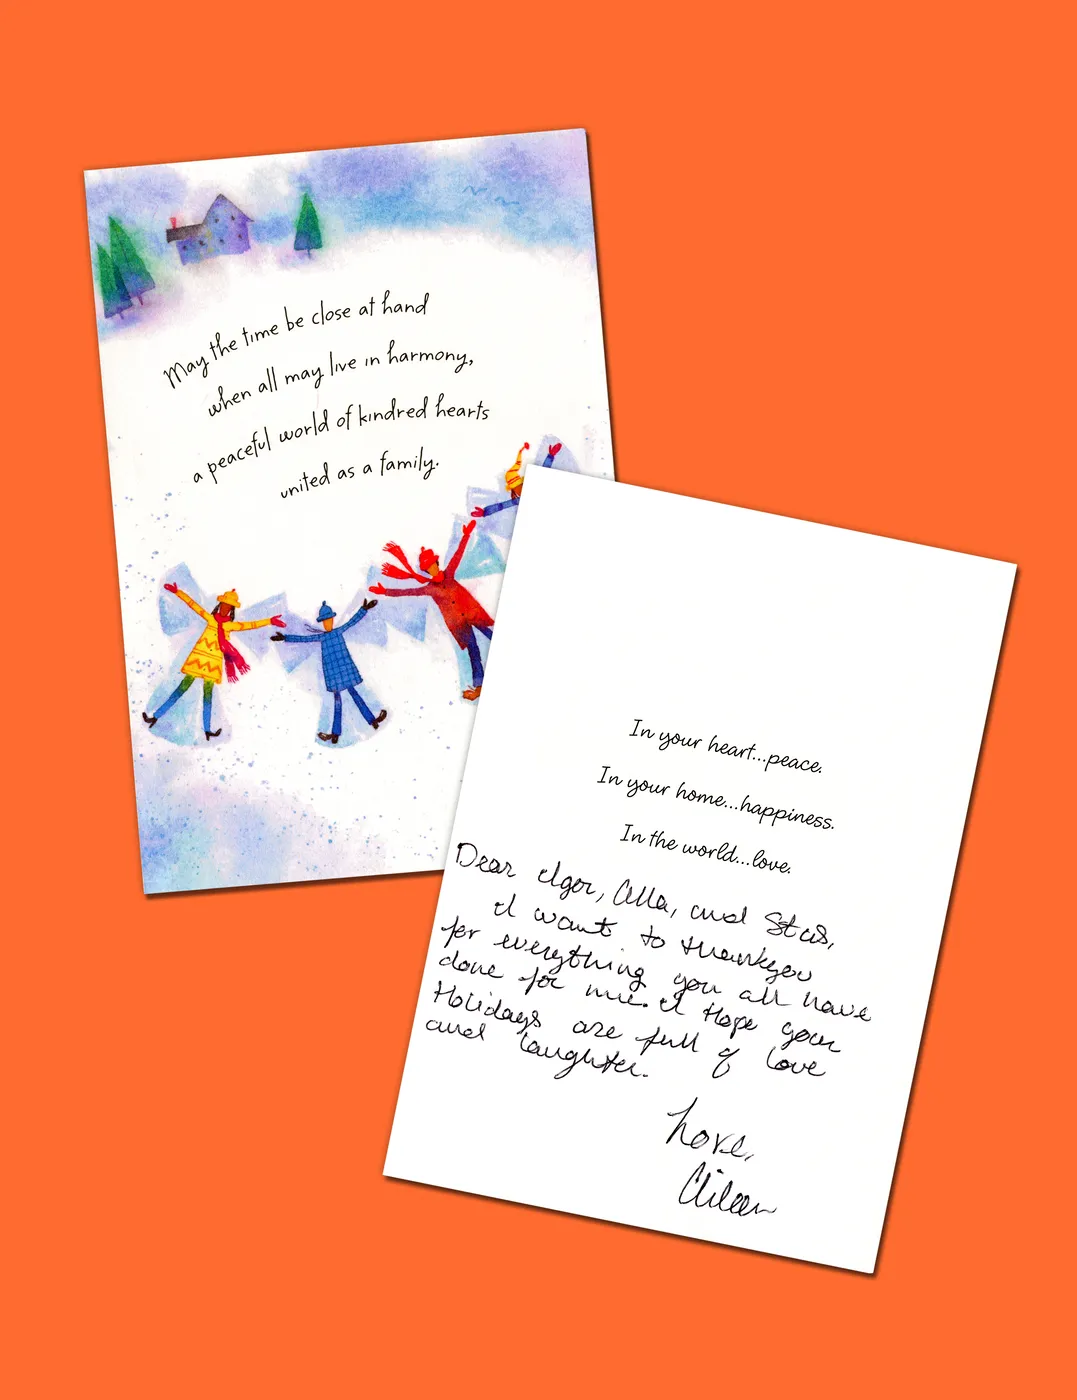 May the time be close at hand
when all may live in harmony,
a peaceful world of kindred hearts
united as a family.
In your heart...peace.
In your home...happiness.
In the world...love.
Dear Igor, Alla, and Stas,
I want to thank you
for everything you all have
done for me. I Hope your
Holidays are full of love
and laughter.
Love,
Aileen